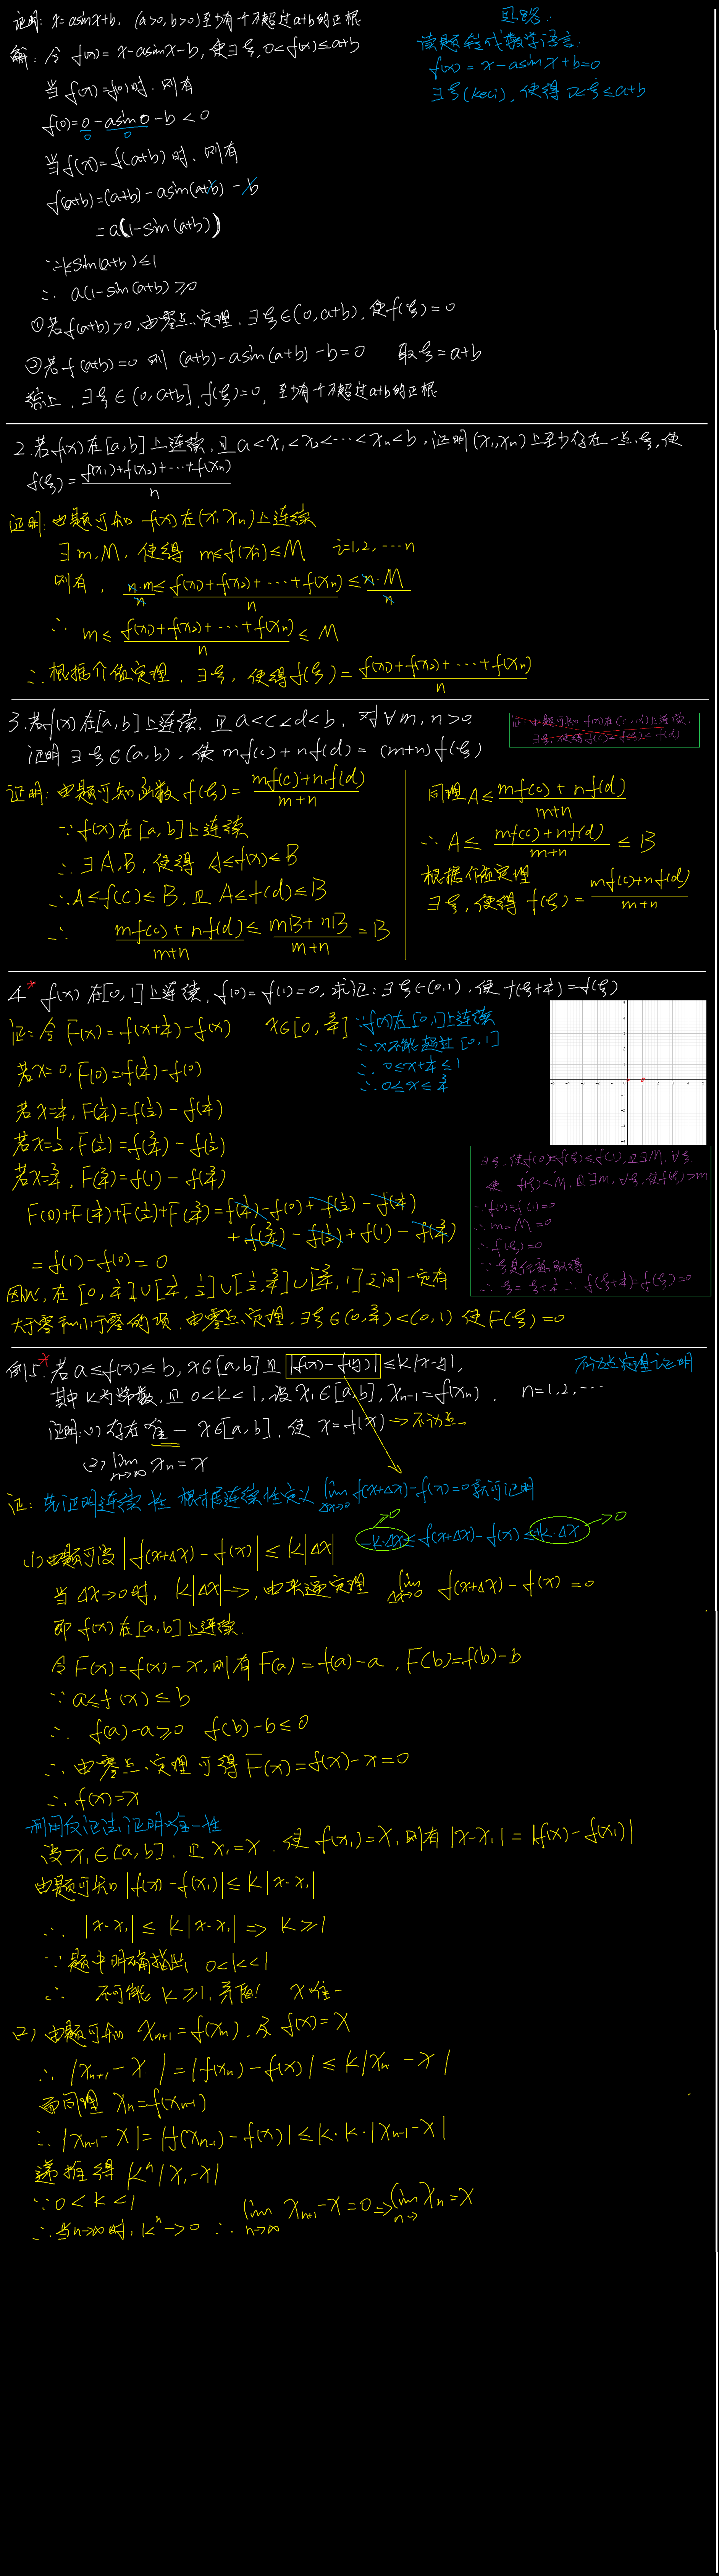 证明: x=asinx+b, (a>0,b>0)至少有一个不超过a+b的正根
解: 令 f(x)=x-asinx-b, 使∃ξ, 0<f(x)≤a+b
当 f(x)=f(0)时, 则有
f(0)=0-asin0-b<0
0 0
当f(x)=f(a+b)时, 则有
f(a+b)=(a+b)-asin(a+b)-b
=a(1-sin(a+b))
∵|sin(a+b)|≤1
∴ a(1-sin(a+b))≥0
①若f(a+b)>0,由零点定理,∃ξ∈(0,a+b),使f(ξ)=0
②若f(a+b)=0则 (a+b)-asin(a+b)-b=0 取ξ=a+b
综上,∃ξ∈(0,a+b],f(ξ)=0,至少有一个不超过a+b的正根
思路:
读题转代数学语言:
f(x)=x-asinx+b=0
∃ξ(keci), 使得 0<ξ≤a+b
2.若f(x)在[a,b]上连续,且a<x₁<x₂<…<xₙ<b,证明(x₁,xₙ)上至少存在一点ξ,使
f(ξ)=(f(x₁)+f(x₂)+…+f(xₙ))/n
证明:由题可知 f(x)在(x₁,xₙ)上连续
∃m,M, 使得 m≤f(xᵢ)≤M i=1,2,…n
则有, n·m/n≤(f(x₁)+f(x₂)+…+f(xₙ))/n≤n·M/n
∴ m≤(f(x₁)+f(x₂)+…+f(xₙ))/n≤M
∴根据介值定理,∃ξ,使得f(ξ)=(f(x₁)+f(x₂)+…+f(xₙ))/n
3.若f(x)在[a,b]上连续,且a<c<d<b, 对∀m,n>0
证明∃ξ∈(a,b),使 mf(c)+nf(d)=(m+n)f(ξ)
证:由题可知f(x)在(c,d)上连续,
∃ξ,使得f(c)<f(ξ)<f(d)
证明:由题可知函数f(ξ)=(mf(c)+nf(d))/(m+n)
∵f(x)在[a,b]上连续
∴∃A,B,使得 A≤f(x)≤B
∴A≤f(c)≤B,且A≤f(d)≤B
∴ (mf(c)+nf(d))/(m+n)≤(mB+nB)/(m+n)=B
同理A≤(mf(c)+nf(d))/(m+n)
∴ A≤(mf(c)+nf(d))/(m+n)≤B
根据介值定理
∃ξ,使得 f(ξ)=(mf(c)+nf(d))/(m+n)
4* f(x)在[0,1]上连续,f(0)=f(1)=0,求证:∃ξ∈(0,1),使f(ξ+¼)=f(ξ)
证:令F(x)=f(x+¼)-f(x) x∈[0,¾]
若x=0,F(0)=f(¼)-f(0)
若x=¼,F(¼)=f(½)-f(¼)
若x=½,F(½)=f(¾)-f(½)
若x=¾,F(¾)=f(1)-f(¾)
F(0)+F(¼)+F(½)+F(¾)=f(¼)-f(0)+f(½)-f(¼)
+f(¾)-f(½)+f(1)-f(¾)
=f(1)-f(0)=0
因此,在[0,¼]∪[¼,½]∪[½,¾]∪[¾,1]之间一定有
大于零和小于零的项,由零点定理,∃ξ∈(0,¾)<(0,1)使F(ξ)=0
∵f(x)在[0,1]上连续
∴x不能超过[0,1]
∴0≤x+¼≤1
∴0≤x≤¾
∃ξ,使f(0)≤f(ξ)≤f(1),且∃M,∀ξ,
使 f(ξ)<M,且∃m,∀ξ,使f(ξ)>m
∵f(0)=f(1)=0
∴m=M=0
∴f(ξ)=0
∵ξ是任意取得
∴ξ=ξ+¼ ∴f(ξ+¼)=f(ξ)=0
例5.* 若a≤f(x)≤b,x∈[a,b]且|f(x)-f(y)|≤k|x-y|,
不动点定理证明
其中k为常数,且0<k<1,设x₁∈[a,b],xₙ₋₁=f(xₙ), n=1,2,…
证明:(1)存在唯一x∈[a,b],使x=f(x)→不动点
(2)lim n→∞ xₙ=x
证: 先证明连续性 根据连续性定义 lim Δx→0 f(x+Δx)-f(x)=0就可证明
-k·Δx≤f(x+Δx)-f(x)≤+k·Δx
→0 →0
(1)由题可设|f(x+Δx)-f(x)|≤k|Δx|
当Δx→0时, k|Δx|→, 由夹逼定理 lim Δx→0 f(x+Δx)-f(x)=0
即f(x)在[a,b]上连续.
令F(x)=f(x)-x,则有F(a)=f(a)-a,F(b)=f(b)-b
∵a≤f(x)≤b
∴ f(a)-a≥0 f(b)-b≤0
∴由零点定理可得F(x)=f(x)-x=0
∴f(x)=x
利用反证法证明唯一性
设x₁∈[a,b],且x₁=x,使f(x₁)=x,则有|x-x₁|=|f(x)-f(x₁)|
由题可知|f(x)-f(x₁)|≤k|x-x₁|
∴ |x-x₁|≤k|x-x₁|⇒k≥1
∵题中明确指出 0<k<1
∴ 不可能k≥1,矛盾! x唯一
(2)由题可知xₙ₊₁=f(xₙ),及f(x)=x
∴|xₙ₊₁-x|=|f(xₙ)-f(x)|≤k|xₙ-x|
而同理xₙ=f(xₙ₋₁)
∴|xₙ₋₁-x|=|f(xₙ₋₁)-f(x)|≤k·k·|xₙ₋₁-x|
递推得kⁿ|x₁-x|
∵0<k<1
∴当n→∞时,kⁿ→0 ∴lim n→∞ xₙ₊₁-x=0⇒lim n→ xₙ=x